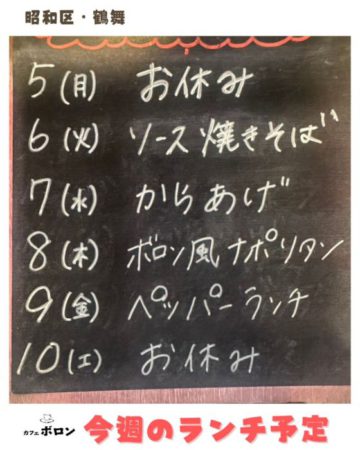 昭和区・鶴舞
5(月) お休み
6(火) ソース焼きそば
7(水) からあげ
8(木) ボロン風ナポリタン
9(金) ペッパーランチ
10(土) お休み
カフェ ボロン 今週のランチ予定